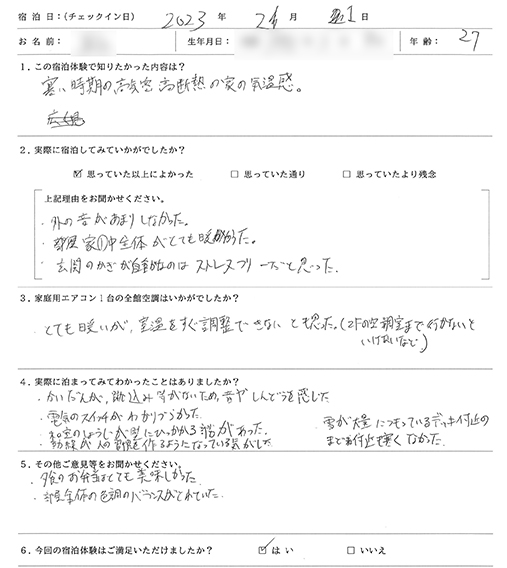 宿泊日：(チェックイン日) 2023 年 2 月 1 日
お名前： 生年月日： 年齢： 27
1. この宿泊体験で知りたかった内容は？
寒い時期の高気密高断熱の家の気温感。
2. 実際に宿泊してみていかがでしたか？
☑ 思っていた以上によかった □ 思っていた通り □ 思っていたより残念
上記理由をお聞かせください。
・外の音があまりしなかった。
・家の中全体がとても暖かかった。
・玄関のかぎが自動なのはストレスフリーだと思った。
3. 家庭用エアコン1台の全館空調はいかがでしたか？
・とても暖いが、室温をすぐ調整できないとも思った。(2Fの空調室まで行かないと
いけないなど)
4. 実際に泊まってみてわかったことはありましたか？
・かいだんが、踏込み等がないため、昇やしんどうを感じた
・電気のスイッチがわかりづらかった。
・和室のしょうじが にひっかかる がわった。
・動線が人の を作るようになっている気がした
・雪が大量につもっているデッキ付近の
まど付近も寒くなかった。
5. その他ご意見等をお聞かせください。
・夕食のお弁当とても美味しかった
・部屋全体の色調のバランスがとれていた。
6. 今回の宿泊体験はご満足いただけましたか？ ☑ はい □ いいえ